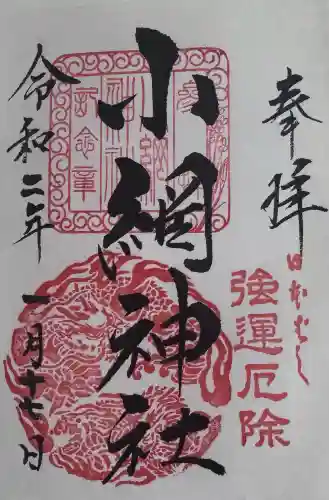 奉拝
日本ばし
強運厄除
小網神社
令和二年
一月十七日